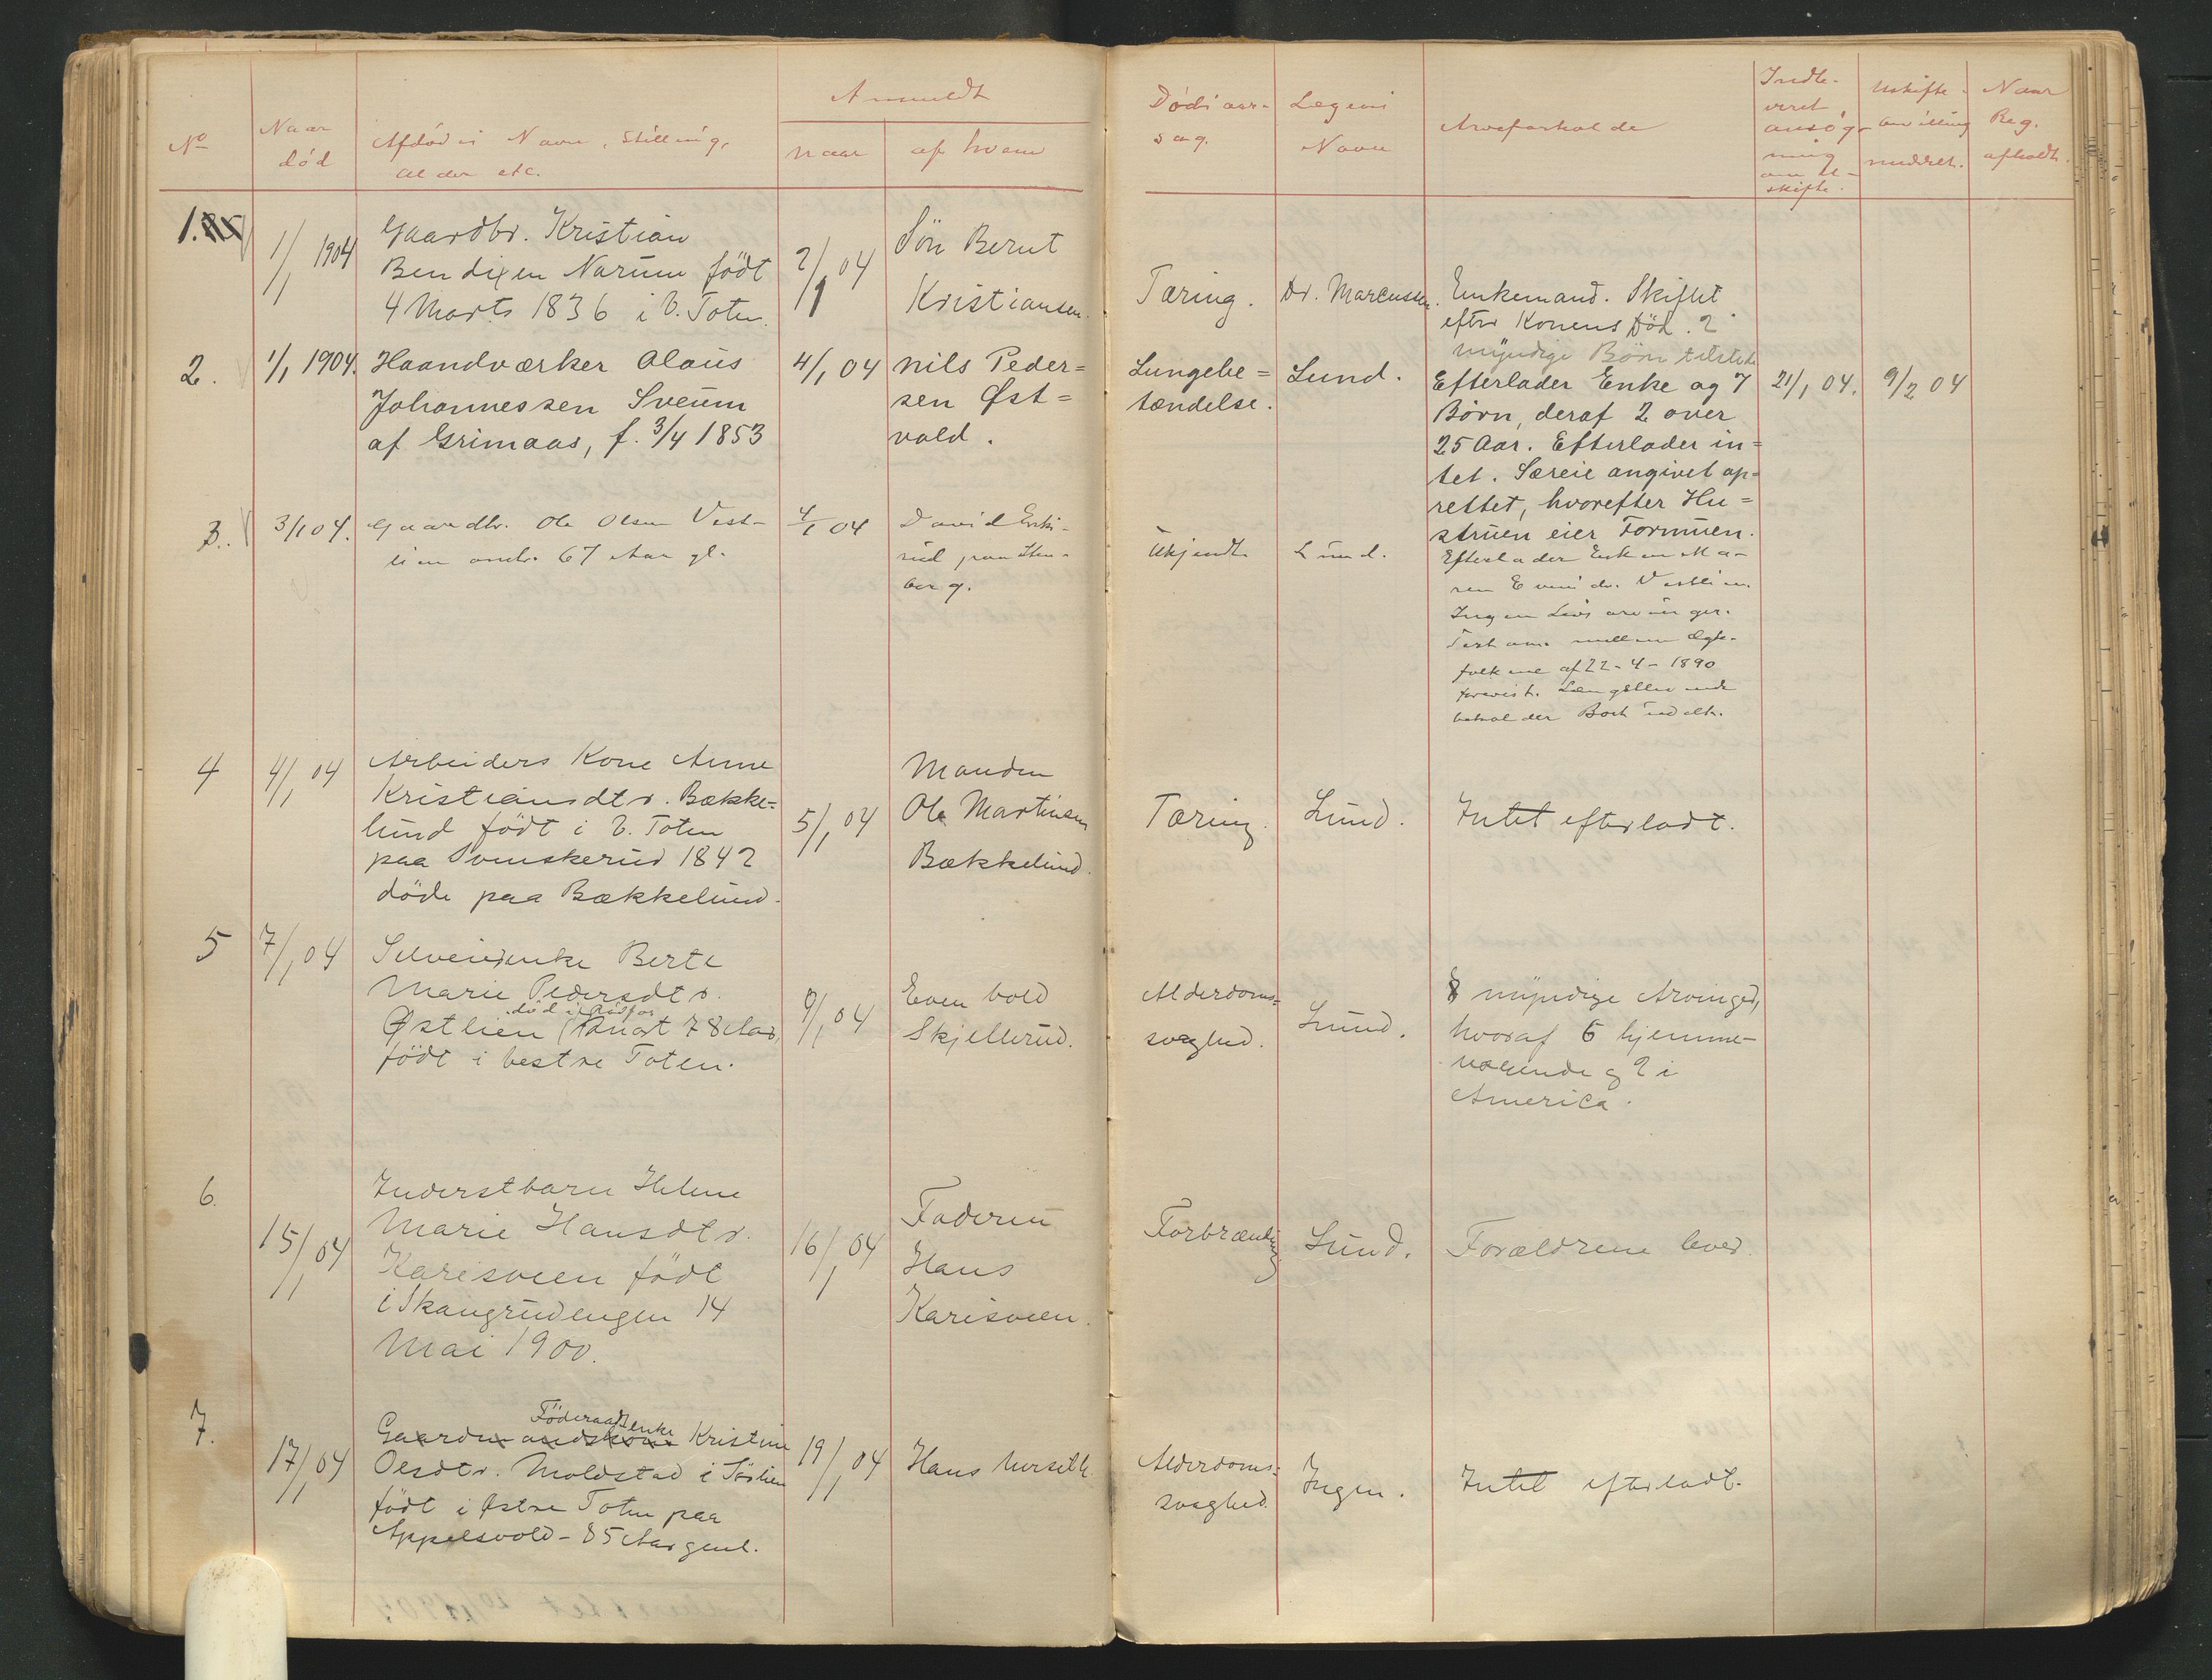 No
Naar
död
Afdødes Navn, Stilling,
Alder etc.
Anmeldt
naar
af hvem
Dødsaar-
sag.
Lægens
Navn
Arveforholde
Indle-
veret
ansøg-
ning
om U-
skifte.
Uskifte-
bevilling
meddelt.
Naar
Reg.
afholdt.
1.
1/1 1904
Gaardbr. Kristian
Bendixen Narum födt
4 Marts 1836 i V. Toten.
2/1 04
Sön Bernt
Kristiansen.
Tæring.
Dr. Marcussen.
Enkemand. Skiftet
efter Konens Död. 2
myndige Börn tilstede
2.
1/1 1904.
Haandværker Olaus
Johannessen Sveum
af Grimaas, f. 3/4 1853
4/1 04
Nils Peder=
sen Øst=
vold.
Lungebe=
tændelse.
Lund.
Efterlader Enke og 7
Børn, deraf 2 over
25 Aar. Efterlader in=
tet. Særeie angivet op=
rettet, hvorefter Hu=
struen eier Formuen.
21/1 04.
9/2 04
3.
3/1 04.
Gaardbr. Ole Olsen Vest-
lien omtr. 67 Aar gl.
4/1 04
David Enke-
rud paa
berg.
Ukjendt
Lund.
Efterlader Enken Ma-
ren Evensdr. Vestlien.
Ingen Livsarvinger.
Testam. mellem Ægte-
folkene af 22-4-1890
forevist. Længstlevende
beholder Boet udelt.
4
4/1 04
Arbeiders Kone Anne
Kristiansdtr. Bække-
lund födt i V. Toten
paa Svenskerud 1842
döde paa Bækkelund.
5/1 04
Manden
Ole Martinsen
Bækkelund.
Tæring.
Lund.
Intet efterladt.
5
7/1 04
Selveierenke Berte
Marie Pedersdtr.
död i
Østlien 78 Aar,
födt i Vestre Toten.
9/1 04
Even Vold
Skjellerud.
Alderdoms=
svaghed.
Lund.
8 myndige Arvinger,
hvoraf 6 hjemme-
værende og 2 i
America.
6.
15/1 04
Inderstbarn Helene
Marie Hansdtr.
Karisveen födt
i Skangrudengen 14
Mai 1900.
16/1 04
Faderen
Hans
Karisveen.
Forbrænding
Lund.
Forældrene lever.
7.
17/1 04
Föderaadsenke
Gaardmandskone Kristine
Olsdtr. Moldstad i Sörlien
födt i Østre Toten paa
Appelsvold - 85 Aar gml.
19/1 04
Hans
Alderdoms=
svaghed.
Ingen.
Intet efterladt.